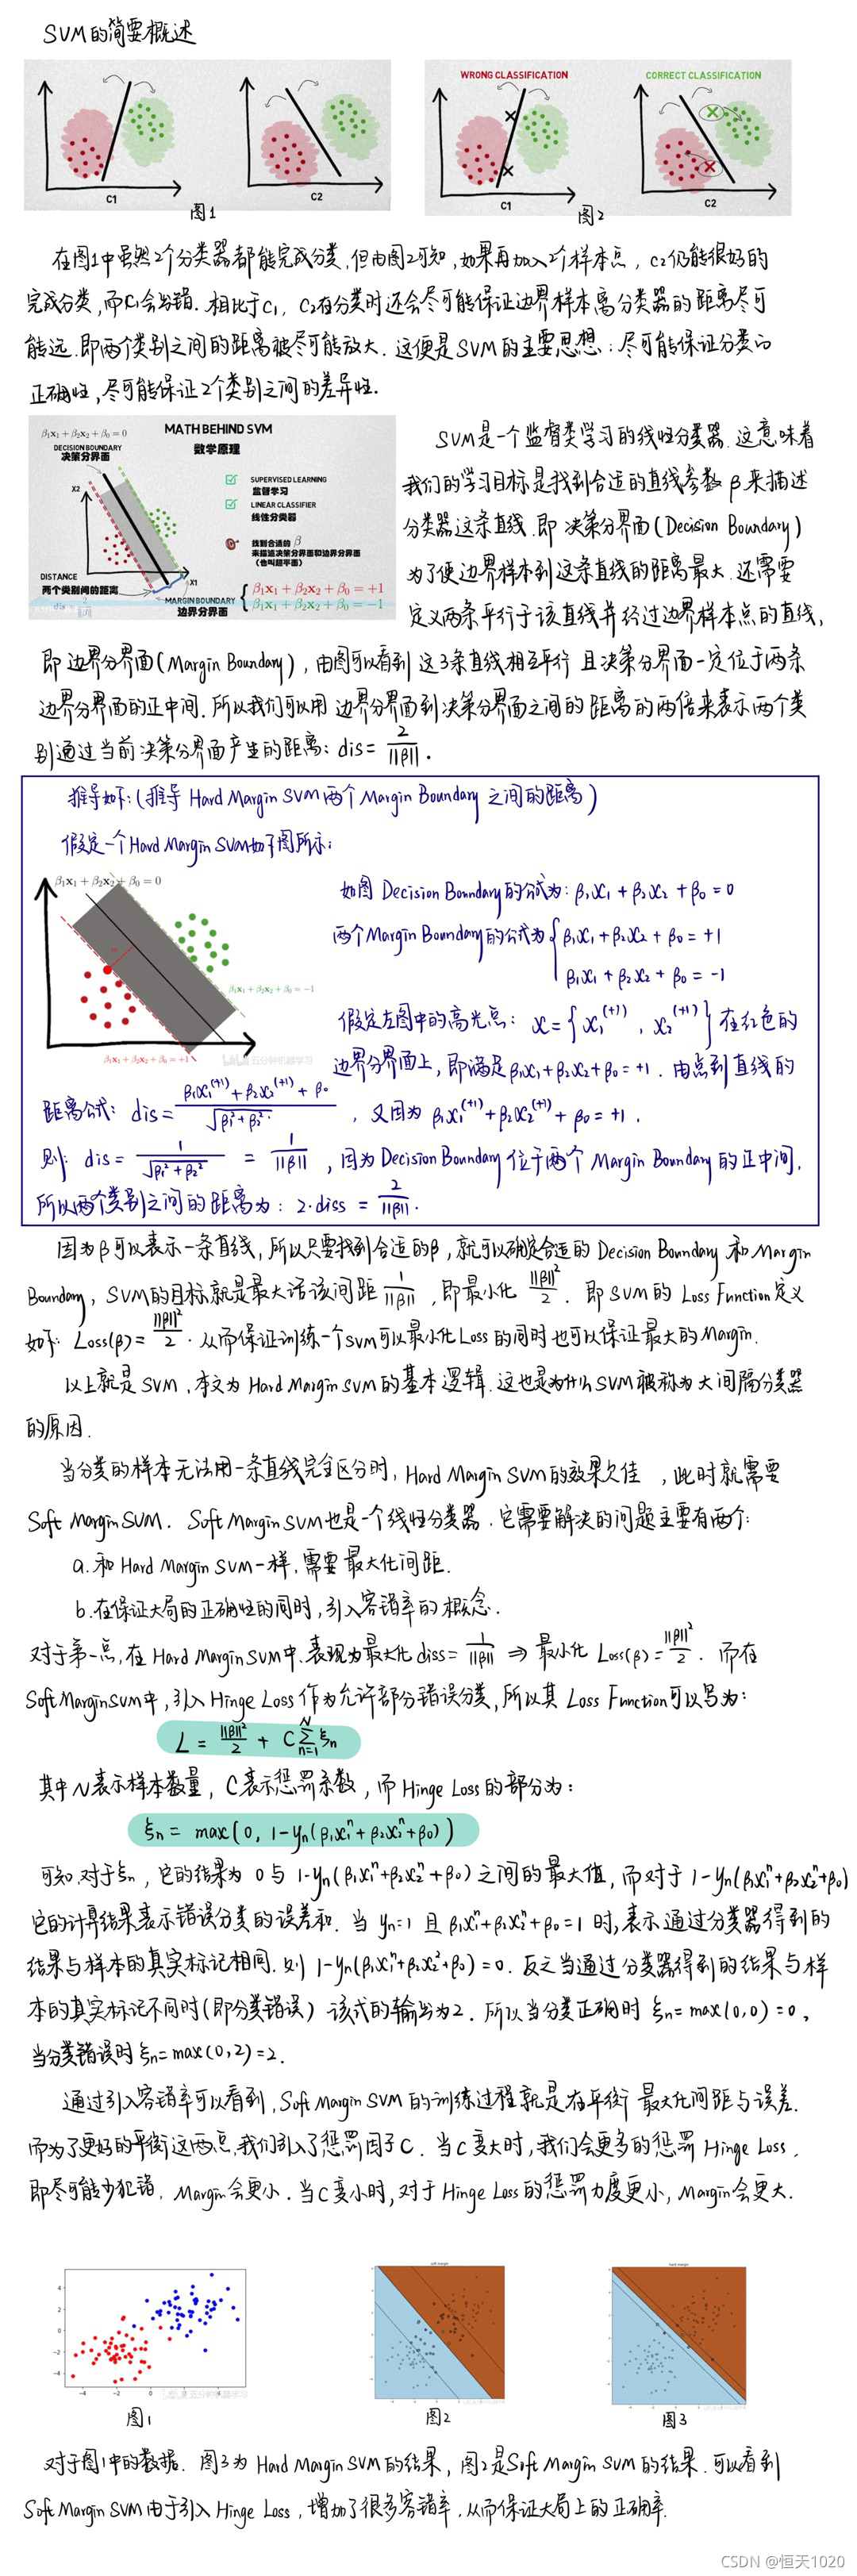 SVM的简要概述
WRONG CLASSIFICATION
CORRECT CLASSIFICATION
C1
C2
C1
C2
图1
图2
在图1中虽然2个分类器都能完成分类,但由图2可知,如果再加入2个样本点,C2仍能很好的
完成分类,而C1会出错.相比于C1,C2在分类时还会尽可能保证边界样本离分类器的距离尽可
能远.即两个类别之间的距离被尽可能放大.这便是SVM的主要思想:尽可能保证分类的
正确性,尽可能保证2个类别之间的差异性.
β₁x₁ + β₂x₂ + β₀ = 0
MATH BEHIND SVM
数学原理
DECISION BOUNDARY
决策分界面
X2
SUPERVISED LEARNING
监督学习
LINEAR CLASSIFIER
线性分类器
找到合适的 β
来描述决策分界面和边界分界面
(也叫超平面)
DISTANCE
两个类别间的距离
X1
MARGIN BOUNDARY
边界分界面
β₁x₁ + β₂x₂ + β₀ = +1
β₁x₁ + β₂x₂ + β₀ = −1
SVM是一个监督类学习的线性分类器.这意味着
我们的学习目标是找到合适的直线参数β来描述
分类器这条直线.即 决策分界面(Decision Boundary)
为了使边界样本到这条直线的距离最大.还需要
定义两条平行于该直线并经过边界样本点的直线,
即 边界分界面(Margin Boundary),由图可以看到 这3条直线相互平行 且决策分界面一定位于两条
边界分界面的正中间.所以我们可以用 边界分界面到决策分界面之间的距离的两倍来表示两个类
别通过当前决策分界面产生的距离: dis = 2/||β||.
推导如下:(推导 Hard Margin SVM 两个 Margin Boundary 之间的距离)
假定一个Hard Margin SVM如下图所示:
β₁x₁ + β₂x₂ + β₀ = 0
β₁x₁ + β₂x₂ + β₀ = −1
β₁x₁ + β₂x₂ + β₀ = +1
五分钟机器学习
如图 Decision Boundary的公式为: β₁x₁ + β₂x₂ + β₀ = 0
两个Margin Boundary的公式为 { β₁x₁ + β₂x₂ + β₀ = +1
β₁x₁ + β₂x₂ + β₀ = −1
假定左图中的高光点: x = { x₁⁽⁺¹⁾, x₂⁽⁺¹⁾ } 在红色的
边界分界面上,即满足β₁x₁+β₂x₂+β₀=+1. 由点到直线的
距离公式: dis = (β₁x₁⁽⁺¹⁾ + β₂x₂⁽⁺¹⁾ + β₀)/√(β₁²+β₂²), 又因为 β₁x₁⁽⁺¹⁾ + β₂x₂⁽⁺¹⁾ + β₀ = +1.
则: dis = 1/√(β₁²+β₂²) = 1/||β||, 因为 Decision Boundary 位于两个 Margin Boundary 的正中间,
所以两个类别之间的距离为: 2·diss = 2/||β||.
因为β可以表示一条直线,所以只要找到合适的β,就可以确定合适的 Decision Boundary 和 Margin
Boundary, SVM的目标就是最大话该间距 1/||β||, 即最小化 ||β||²/2. 即 SVM 的 Loss Function定义
如下: Loss(β) = ||β||²/2. 从而保证训练一个SVM可以最小化Loss的同时也可以保证最大的Margin.
以上就是SVM,本文为 Hard Margin SVM的基本逻辑.这也是为什么SVM被称为大间隔分类器
的原因.
当分类的样本无法用一条直线完全区分时, Hard Margin SVM的效果欠佳,此时就需要
Soft Margin SVM. Soft Margin SVM也是一个线性分类器.它需要解决的问题主要有两个:
a.和 Hard Margin SVM一样,需要最大化间距.
b.在保证大局的正确性的同时,引入容错率的概念.
对于第一点,在 Hard Margin SVM中,表现为最大化 diss = 1/||β|| ⇒ 最小化 Loss(β) = ||β||²/2. 而在
Soft Margin SVM中,引入Hinge Loss 作为允许部分错误分类,所以其 Loss Function可以写为:
L = ||β||²/2 + C∑ₙ₌₁ᴺ ξₙ
其中N表示样本数量, C表示惩罚系数,而Hinge Loss的部分为:
ξₙ = max(0, 1−yₙ(β₁x₁ⁿ+β₂x₂ⁿ+β₀))
可知,对于ξₙ,它的结果为 0 与 1−yₙ(β₁x₁ⁿ+β₂x₂ⁿ+β₀) 之间的最大值,而对于 1−yₙ(β₁x₁ⁿ+β₂x₂ⁿ+β₀)
它的计算结果表示错误分类的误差和.当 yₙ=1 且 β₁x₁ⁿ+β₂x₂ⁿ+β₀=1 时,表示通过分类器得到的
结果与样本的真实标记相同.则 1−yₙ(β₁x₁ⁿ+β₂x₂²+β₀)=0. 反之当通过分类器得到的结果与样
本的真实标记不同时(即分类错误) 该式的输出为2. 所以当分类正确时 ξₙ=max(0,0)=0,
当分类错误时ξₙ=max(0,2)=2.
通过引入容错率可以看到,Soft Margin SVM 的训练过程就是在平衡 最大化间距与误差.
而为了更好的平衡这两点,我们引入了惩罚因子C. 当C变大时,我们会更多的惩罚 Hinge Loss,
即尽可能少犯错, Margin会更小.当C变小时,对于Hinge Loss的惩罚力度更小, Margin会更大.
soft margin
hard margin
4
2
0
−2
−4
−4 −2 0 2 4
五分钟机器学习
图1
图2
图3
对于图1中的数据. 图3为 Hard Margin SVM的结果, 图2是Soft Margin SVM的结果.可以看到
Soft Margin SVM由于引入Hinge Loss,增加了很多容错率,从而保证大局上的正确率.
CSDN @恒天1020